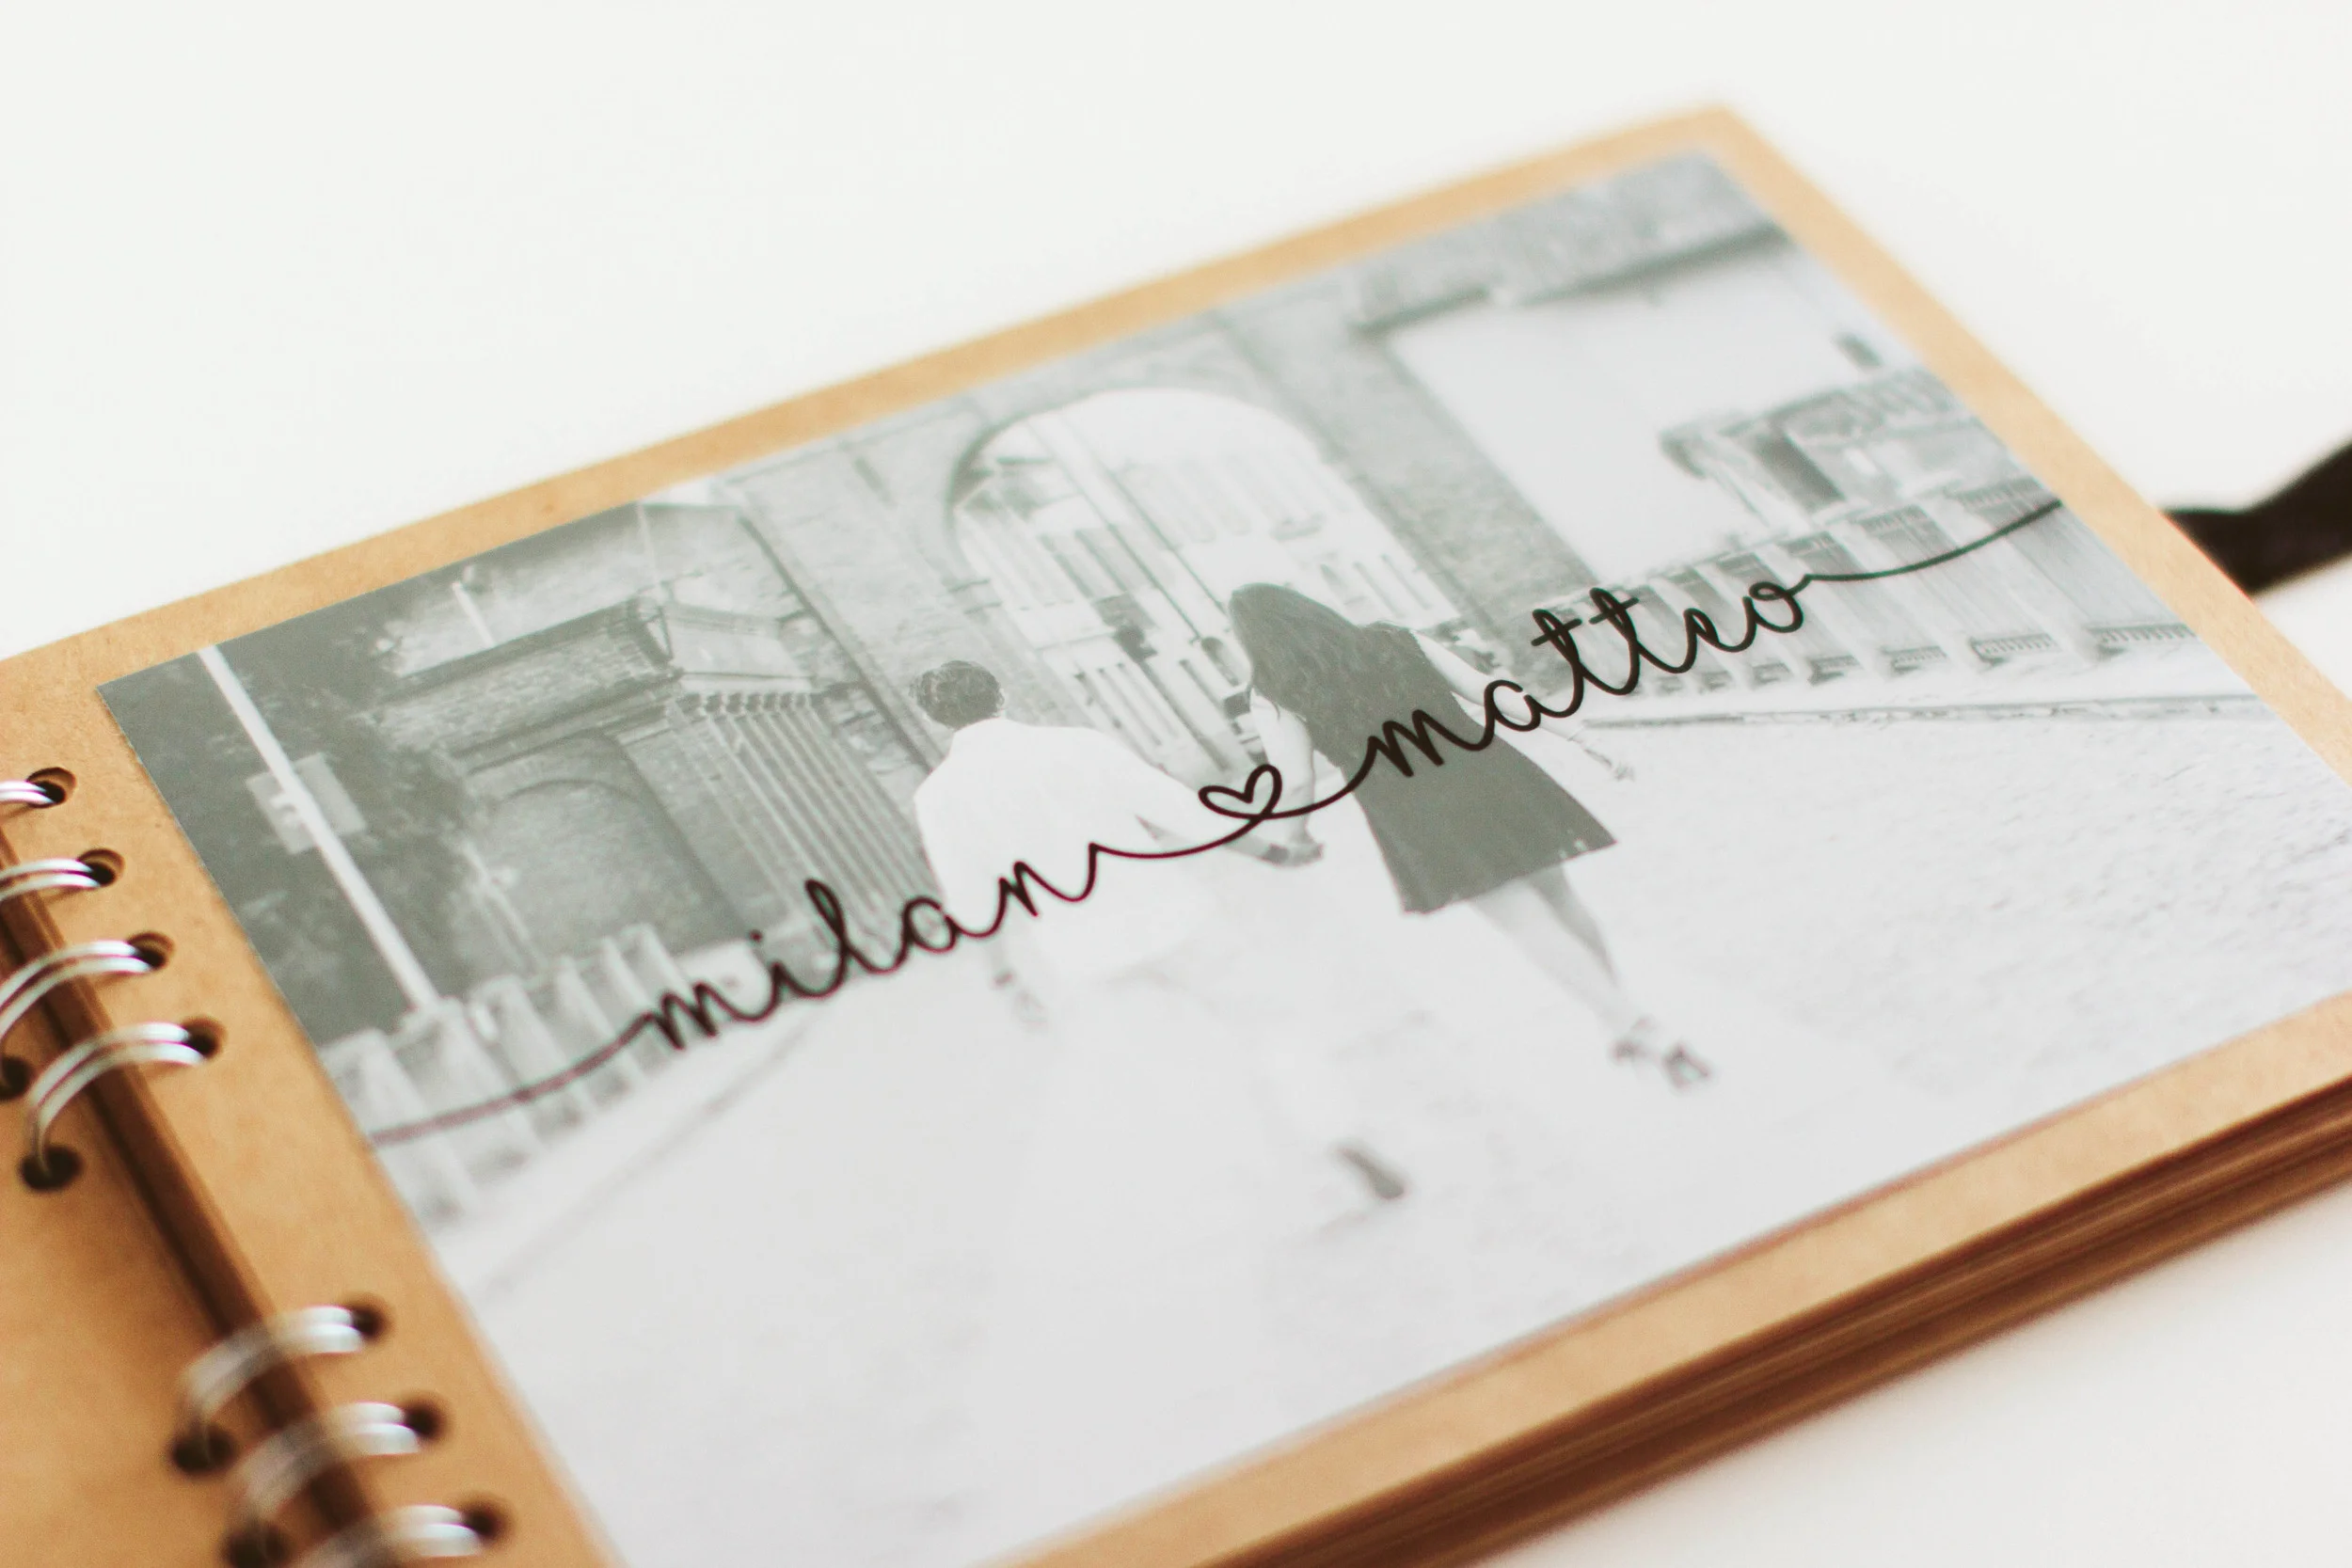 milan matteo